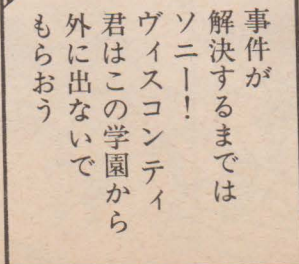 事件が
解決するまでは
ソニー！
ヴィスコンティ
君はこの学園から
外に出ないで
もらおう